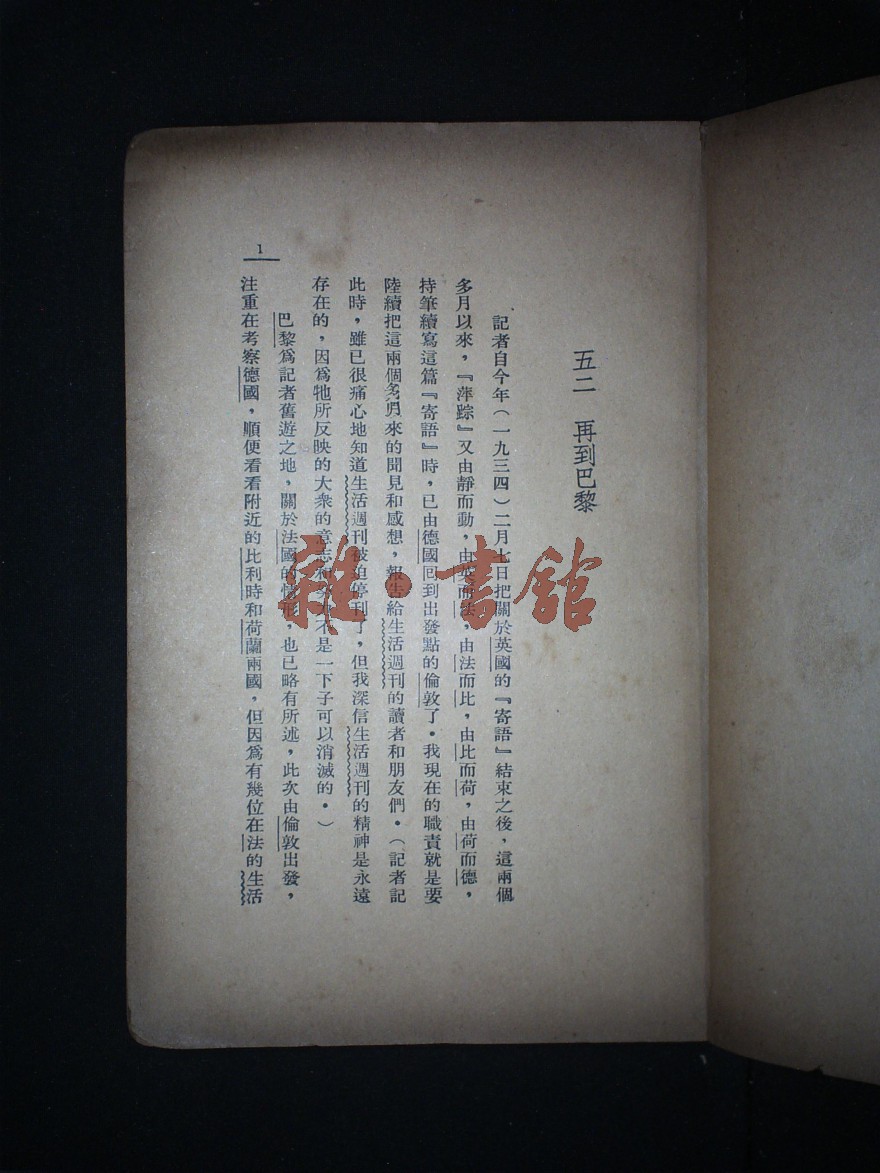 五二　再到巴黎
記者自今年（一九三四）二月七日把關於英國的『寄語』結束之後，這兩個
多月以來，『萍踪』又由靜而動，由英而法，由法而比，由比而荷，由荷而德，
持筆續寫這篇『寄語』時，已由德國回到出發點的倫敦了。我現在的職責就是要
陸續把這兩個多月來的聞見和感想，報告給生活週刊的讀者和朋友們。（記者記
此時，雖已很痛心地知道生活週刊被迫停刊了，但我深信生活週刊的精神是永遠
存在的，因爲牠所反映的大衆的意志和不是一下子可以消滅的。）
巴黎爲記者舊遊之地，關於法國的情形，也已略有所述，此次由倫敦出發，
注重在考察德國，順便看看附近的比利時和荷蘭兩國，但因爲有幾位在法的生活
1
雜・書館